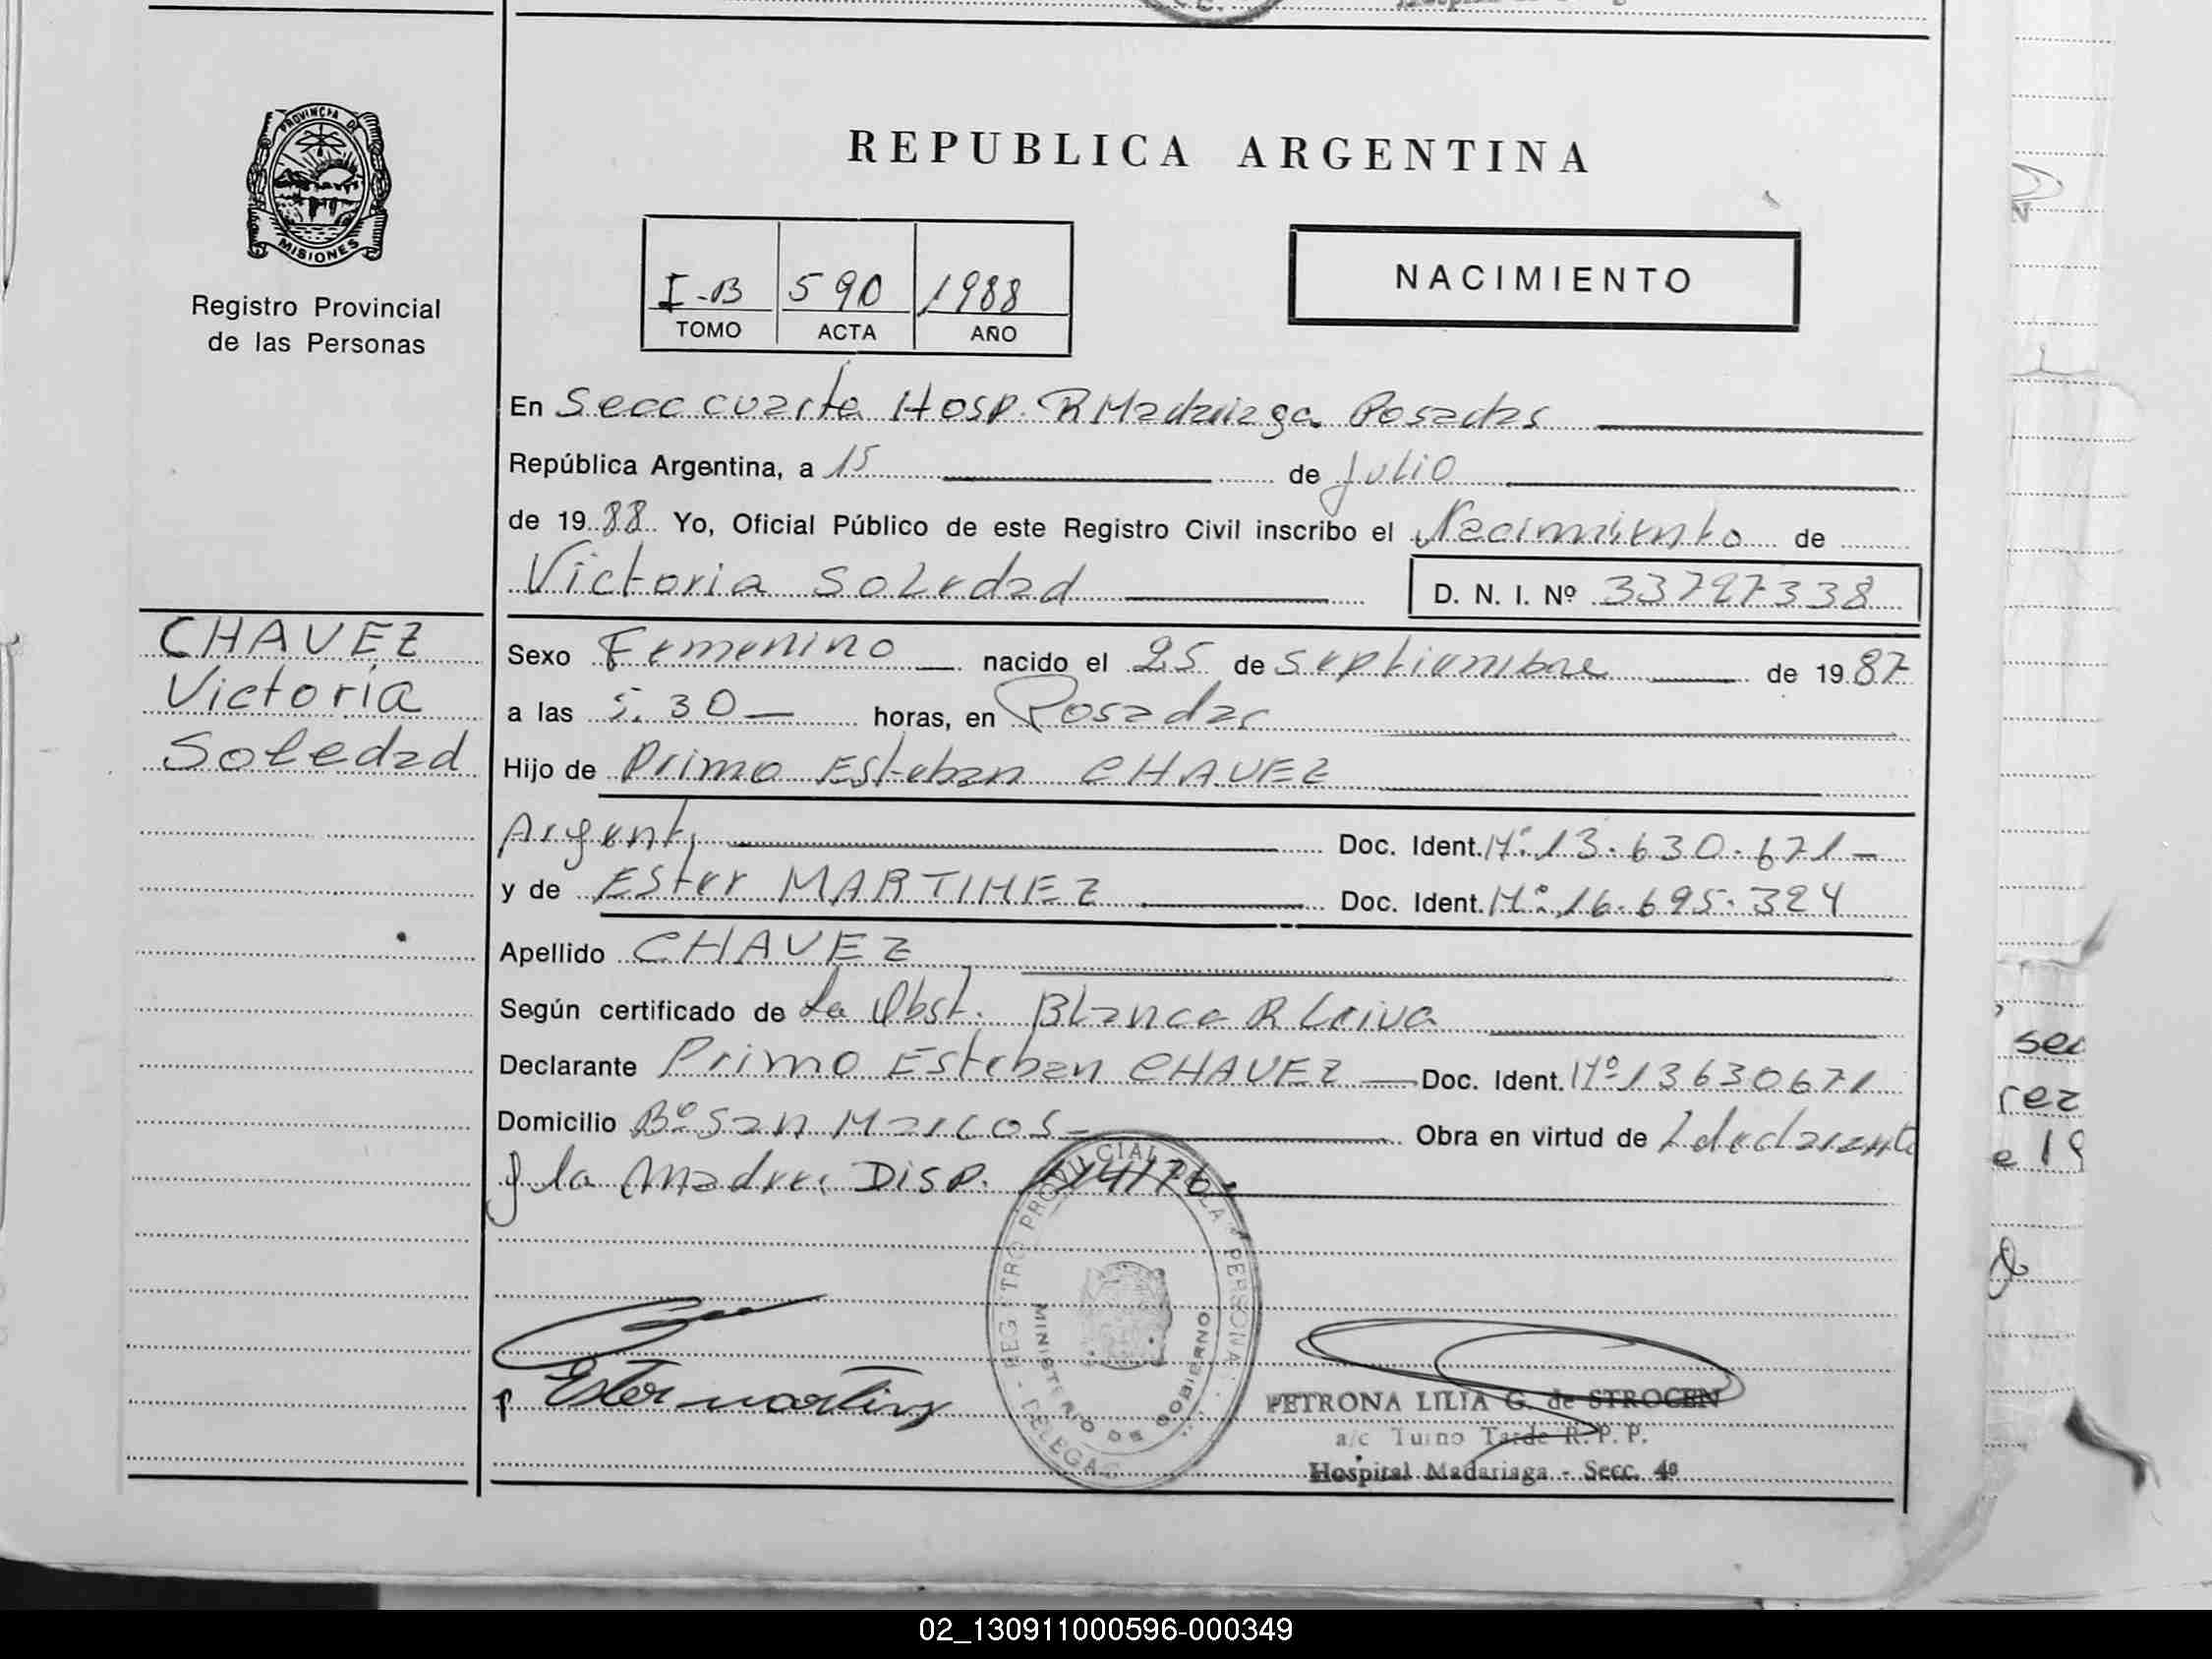 PROVINCIA DE
MISIONES
Registro Provincial
de las Personas
REPUBLICA ARGENTINA
I-B 590 1988
TOMO ACTA AÑO
NACIMIENTO
En Secc cuarta Hosp. R Madariaga Posadas
República Argentina, a 15 de Julio
de 1988 Yo, Oficial Público de este Registro Civil inscribo el Nacimiento de
Victoria Soledad D. N. I. Nº 33727338
CHAVEZ
Victoria
Soledad
Sexo Femenino nacido el 25 de Septiembre de 1987
a las 5.30 horas, en Posadas
Hijo de Primo Esteban CHAVEZ
Argent. Doc. Ident. Nº 13.630.671
y de Ester MARTINEZ Doc. Ident. Nº 16.695.324
Apellido CHAVEZ
Según certificado de la Obst. Blanca R Leiva
Declarante Primo Esteban CHAVEZ Doc. Ident. Nº 13630671
Domicilio Bº San Marcos Obra en virtud de l declarante
y la Madre. DISP.
REGISTRO PROVINCIAL DE LA PERSONA
MINISTERIO DE GOBIERNO
Ester martinez
PETRONA LILIA G. de STROCEN
a/c Turno Tarde R. P. P.
Hospital Madariaga - Secc. 4ª
sec
rez
e 19
02_130911000596-000349